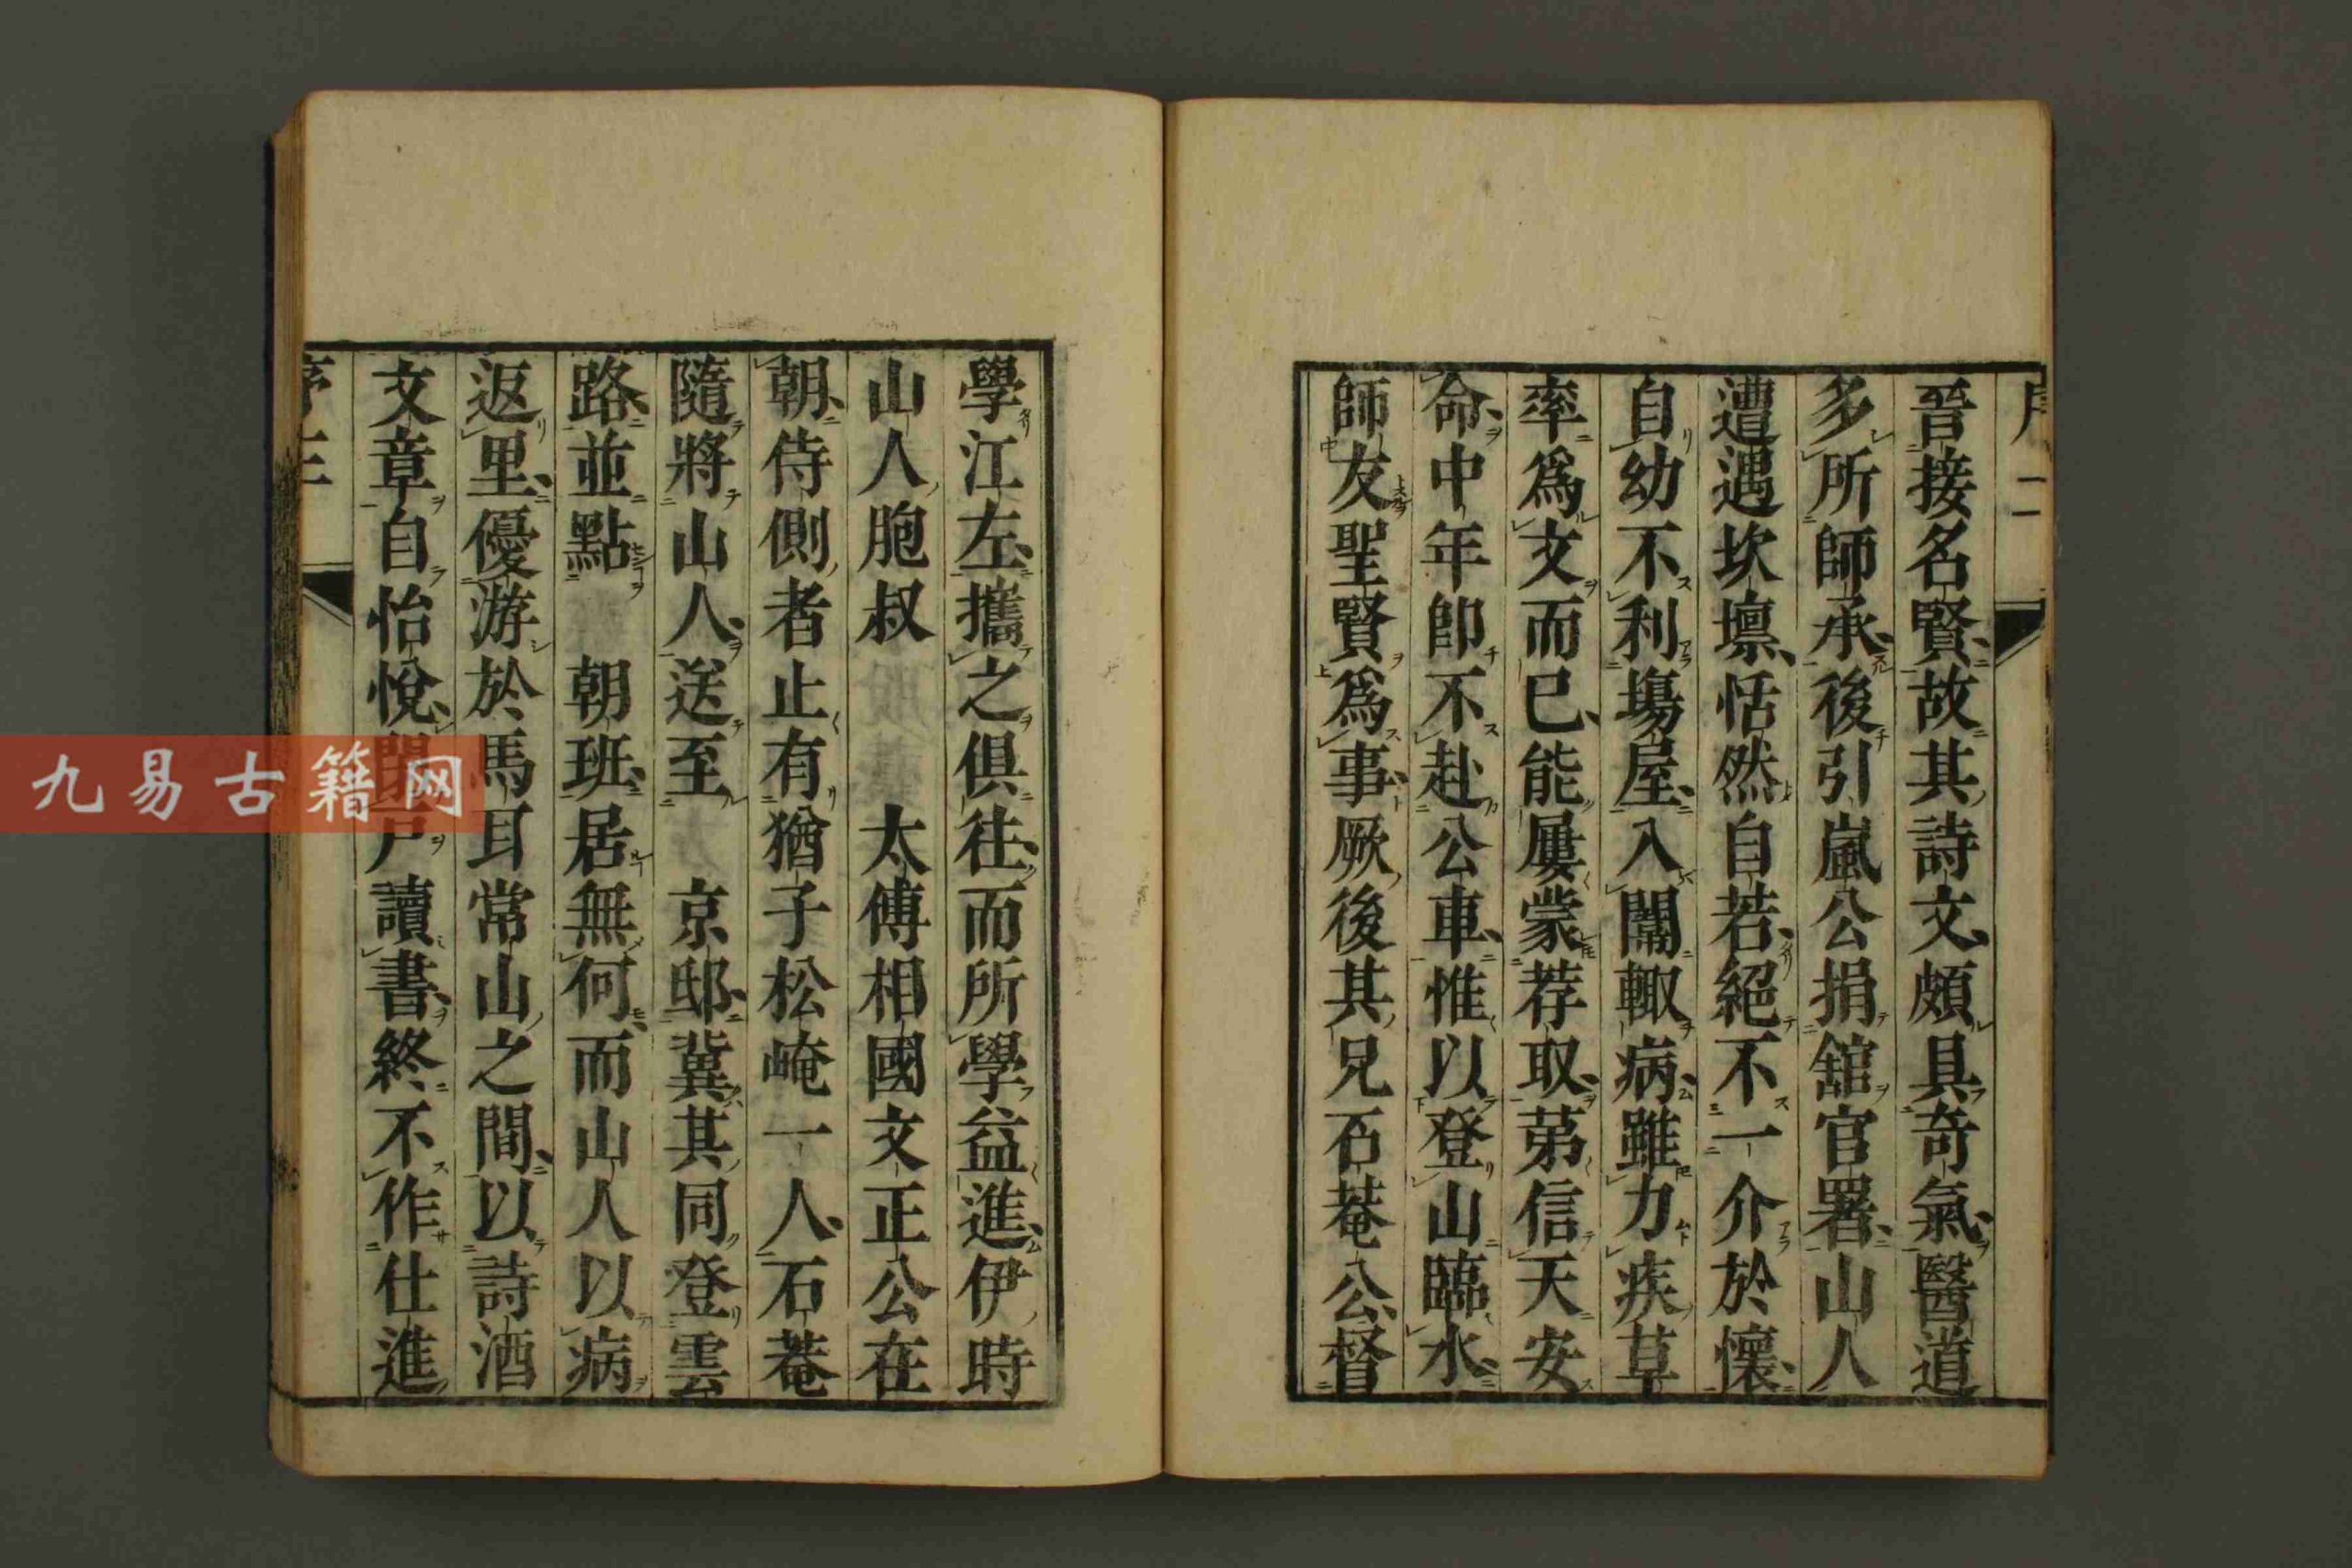 序二
晉接名賢故其詩文頗具奇氣醫道
多所師承後引嵐公捐舘官署山人
遭遇坎壈恬然自若絕不一介於懷
自幼不利塲屋入闈輙病雖力疾草
率爲文而已能屢蒙荐取苐信天安
命中年卽不赴公車惟以登山臨水
師友聖賢爲事厥後其兄石菴公督
學江左攜之俱往而所學益進伊時
山人胞叔 太傅相國文正公在
朝侍側者止有猶子松崦一人石菴
隨將山人送至 京邸冀其同登雲
路並點 朝班居無何而山人以病
返里優游於馬耳常山之間以詩酒
文章自怡悅閉户讀書終不作仕進
序三
九易古籍网